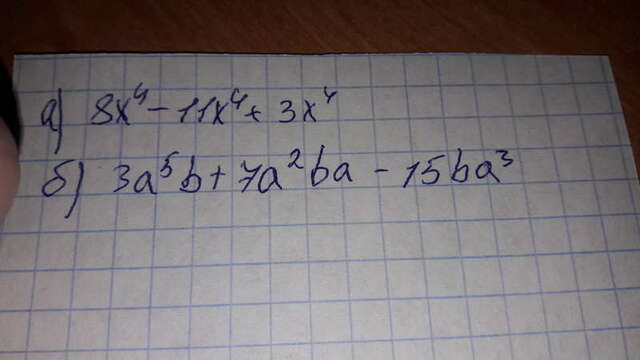 а) 8x⁴ - 11x⁴ + 3x⁴
б) 3a⁵b + 7a²ba - 15ba³